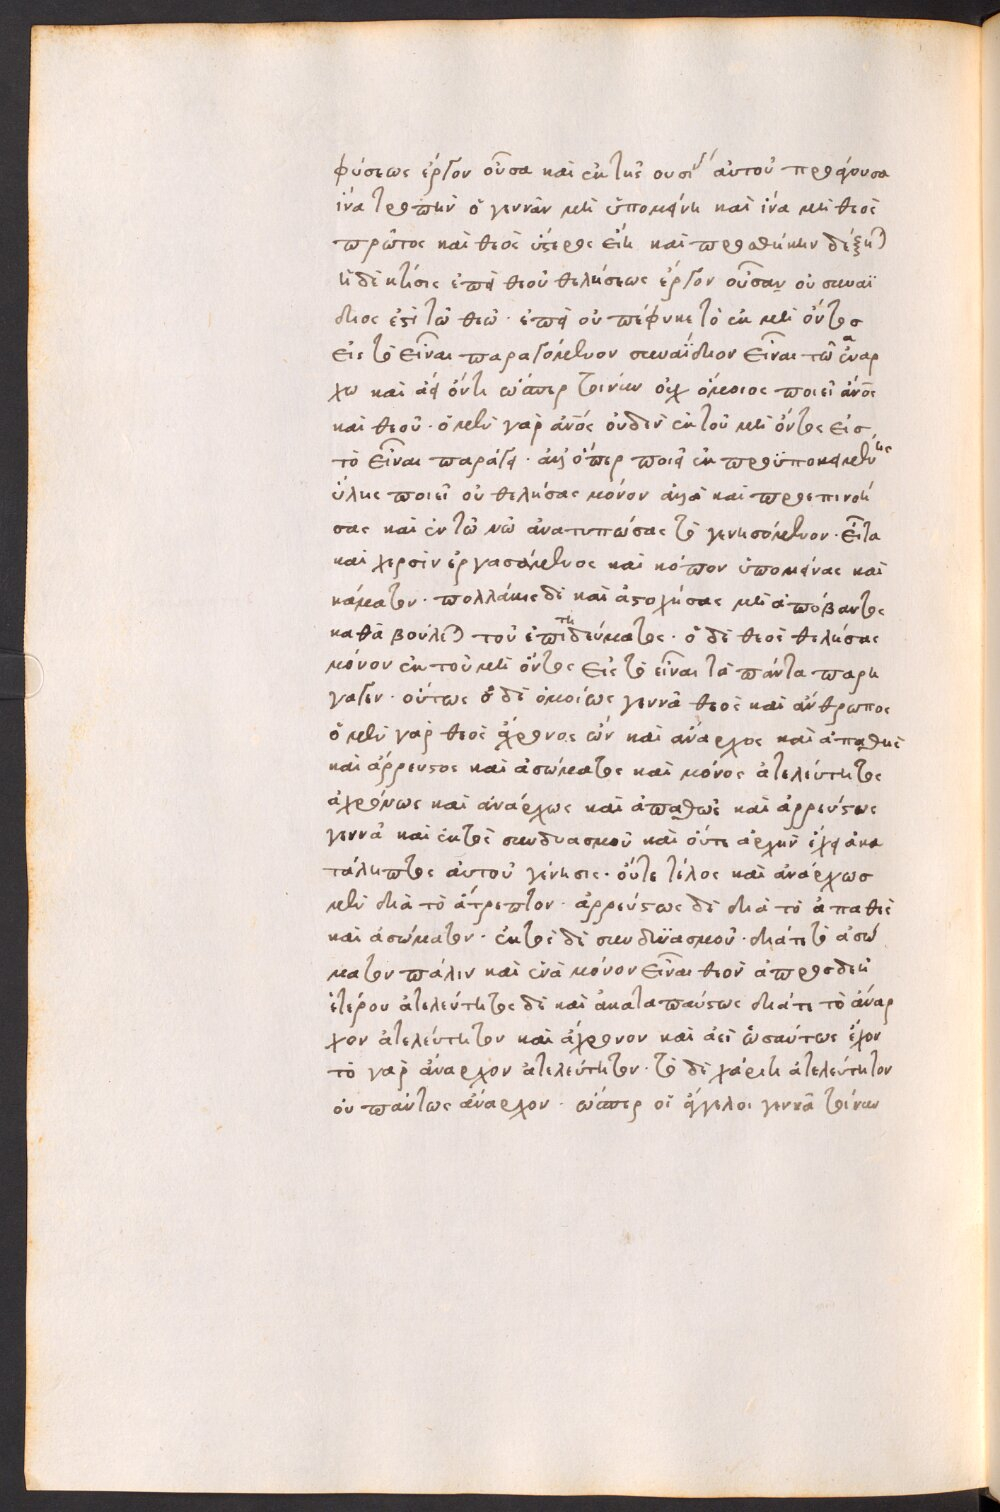 φύσεως ἔργον οὖσα καὶ ἐκ τῆς οὐσί αὐτοῦ προάγουσα
ἵνα τροπὴν ὁ γεννῶν μὴ ὑπομείνη καὶ ἵνα μὴ θεὸς
πρῶτος καὶ θεὸς ὕστερος εἴη καὶ προσθήκην δέξηται
ἡ δὲ κτίσις ἐπεὶ θεοῦ θελήσεως ἔργον οὖσαν οὐ συναΐ
διος ἐστὶ τῶ θεῶ · ἐπεὶ οὐ πέφυκε τὸ ἐκ μὴ ὄντος
εἰς τὸ εἶναι παραγόμενον συναΐδιον εἶναι τῶ ἀνάρ
χω καὶ ἀεὶ ὄντι ὥσπερ τοίνυν οὐχ ὁμοίως ποιεῖ ἄνος
καὶ θεοῦ · ὁ μὲν γὰρ ἄνος οὐδὲν ἐκ τοῦ μὴ ὄντος εἰς
τὸ εἶναι παράγει · ἀλλ' ὅπερ ποιεῖ ἐκ προϋποκειμένης
ὕλης ποιεῖ οὐ θελήσας μόνον ἀλλὰ καὶ προεπινοή
σας καὶ ἐν τῶ νῶ ἀνατυπώσας τὸ γενησόμενον · εἶτα
καὶ χερσὶν ἐργασάμενος καὶ κόπον ὑπομείνας καὶ
κάματον · πολλάκις δὲ καὶ ἀστοχήσας μὴ ἀποβάντος
καθὰ βούλεται τοῦ ἐπιτηδεύματος · ὁ δὲ θεὸς θελήσας
μόνον ἐκ τοῦ μὴ ὄντος εἰς τὸ εἶναι τὰ πάντα παρή
γαγεν · οὕτως δὲ ὁμοίως γεννᾶ θεὸς καὶ ἄνθρωπος
ὁ μὲν γὰρ θεὸς ἄχρονος ὢν καὶ ἄναρχος καὶ ἀπαθὴς
καὶ ἄρρευστος καὶ ἀσώματος καὶ μόνος ἀτελεύτητος
ἀχρόνως καὶ ἀνάρχως καὶ ἀπαθῶς καὶ ἀρρεύστως
γεννᾶ καὶ ἐκτὸς συνδυασμοῦ καὶ οὔτε ἀρχὴν ἔχει ἀκα
τάληπτος αὐτοῦ γένησις · οὔτε τέλος καὶ ἀνάρχως
μὲν διὰ τὸ ἄτρεπτον · ἀρρεύστως δὲ διὰ τὸ ἀπαθὲς
καὶ ἀσώματον · ἐκτὸς δὲ συνδυασμοῦ · διά τε τὸ ἀσώ
ματον πάλιν καὶ ἕνα μόνον εἶναι θεὸν ἀπροσδεῆ
ἑτέρου ἀτελεύτητος δὲ καὶ ἀκαταπαύστως διά τε τὸ ἄναρ
χον ἀτελεύτητον καὶ ἄχρονον καὶ ἀεὶ ὡσαύτως ἔχον
τὸ γὰρ ἄναρχον ἀτελεύτητον · τὸ δὲ χάριτι ἀτελεύτητον
οὐ πάντως ἄναρχον · ὥσπερ οἱ ἄγγελοι γεννᾶ τοίνυν